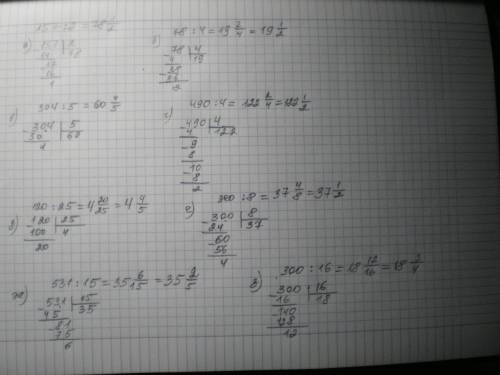 а)
= 78 1/2
б) 78 : 4 = 19 2/4 = 19 1/2
78 | 4
4 | 19
- 38
2
в) 304 : 5 = 60 4/5
- 304 | 5
30 | 60
4
г) 490 : 4 = 122 2/4 = 122 1/2
- 490 | 4
4 | 122
- 9
8
- 10
8
2
120 : 25 = 4 20/25 = 4 4/5
- 120 | 25
100 | 4
20
е) 300 : 8 = 37 4/8 = 37 1/2
- 300 | 8
24 | 37
- 60
56
4
ж) 531 : 15 = 35 6/15 = 35 2/5
- 531 | 15
45 | 35
- 81
75
6
з) 300 : 16 = 18 12/16 = 18 3/4
- 300 | 16
16 | 18
- 140
128
12